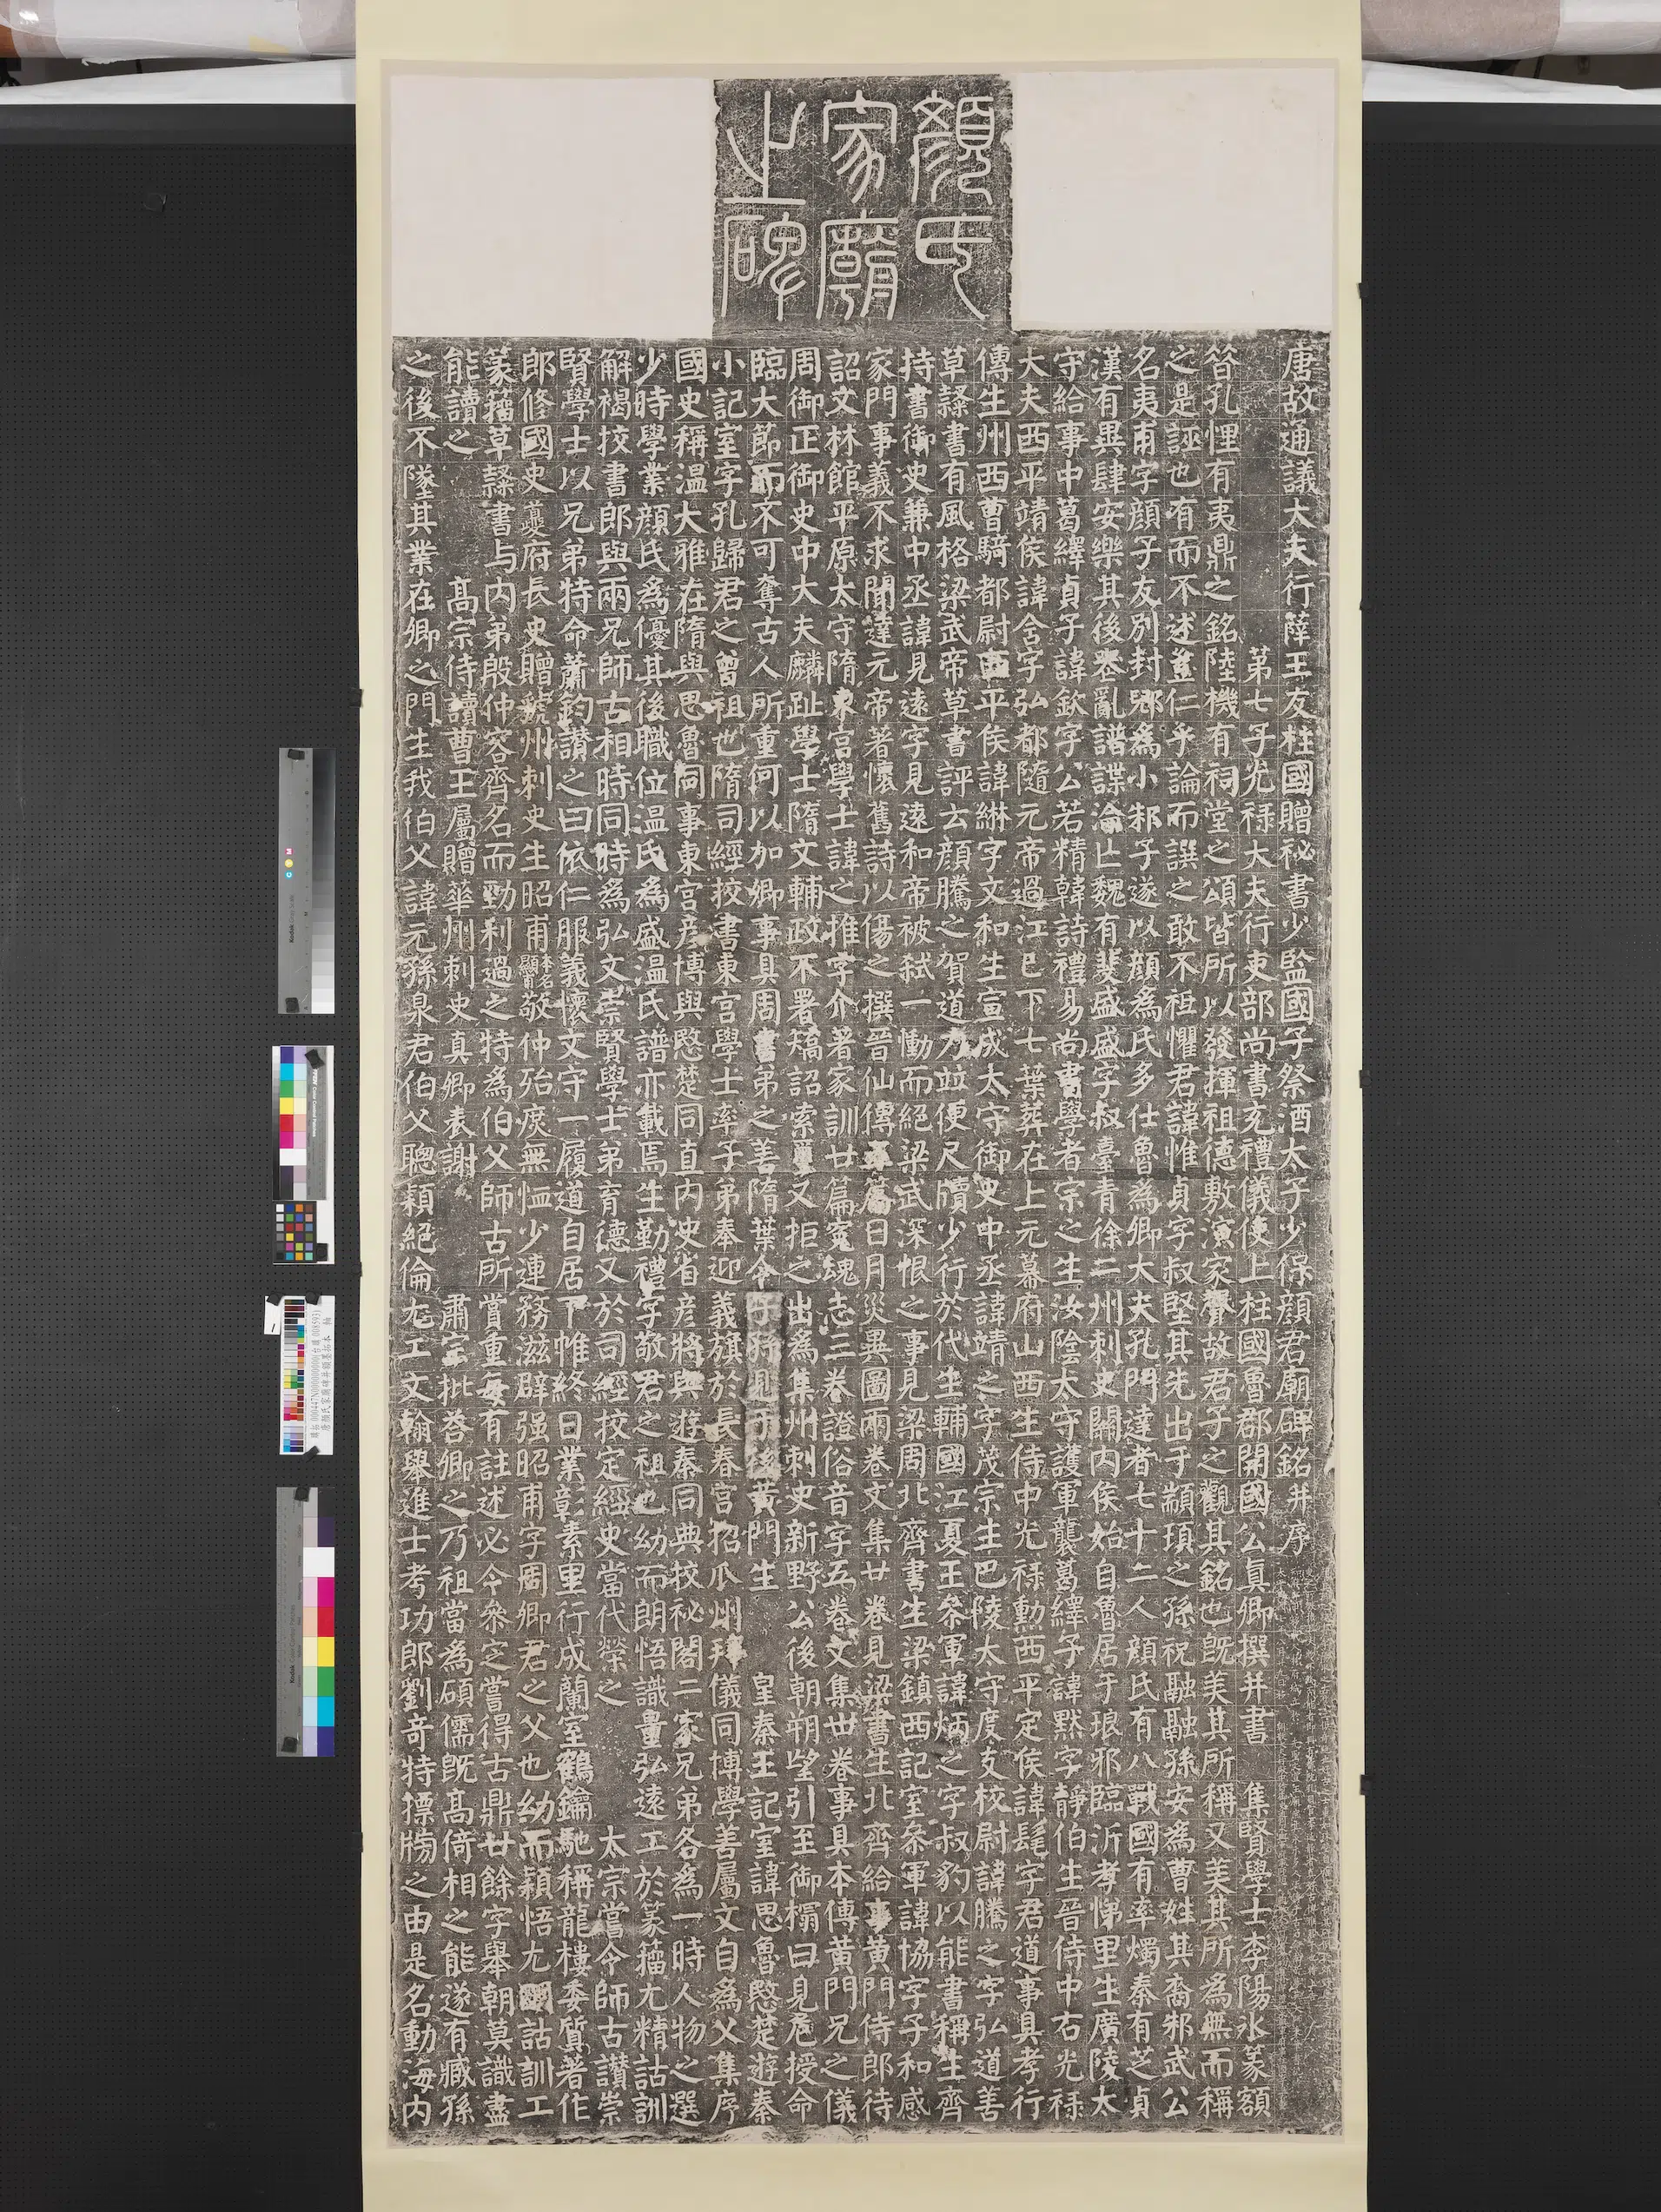 顏氏
家廟
之碑
唐故通議大夫行薛王友柱國贈祕書少監國子祭酒太子少保顏君廟碑銘并序
第七子光祿大夫行吏部尚書充禮儀使上柱國魯郡開國公真卿撰并書 集賢學士李陽冰篆額
昝孔悝有夷鼎之銘陸機有祠堂之頌皆所以發揮祖德敷演家聲故君子之觀其銘也既美其所稱又美其所為無而稱
之是誣也有而不述豈仁乎論而譔之敢不祖懼君諱惟貞字叔堅其先出于顓頊之孫祝融融孫安為曹姓其裔邾武公
名夷甫字顏子友別封郳為小邾子遂以顏為氏多仕魯為卿大夫孔門達者七十二人顏氏有八戰國有率燭秦有芝貞
漢有異肆安樂其後喪亂譜諜淪亡魏有斐盛盛字叔臺青徐二州刺史關內侯始自魯居于琅邪臨沂孝悌里生廣陵太
守給事中葛繹貞子諱欽字公若精韓詩禮易尚書學者宗之生汝陰太守護軍襲葛繹子諱默字靜伯生晉侍中右光祿
大夫西平靖侯諱含字弘都隨元帝過江已下七葉葬在上元幕府山西生侍中光祿勳西平定侯諱髦字君道事具孝行
傳生州西曹騎都尉西平侯諱綝字文和生宣成太守御史中丞諱靖之字茂宗生巴陵太守度支校尉諱騰之字弘道善
草隸書有風格梁武帝草書評云顏騰之賀道力並便尺牘少行於代生輔國江夏王叅軍諱炳之字叔豹以能書稱生齊
持書御史兼中丞諱見遠字見遠和帝被弒一慟而絕梁武深恨之事見梁周北齊書生梁鎮西記室叅軍諱協字子和感
家門事義不求聞達元帝著懷舊詩以傷之撰晉仙傳五篇日月災異圖兩卷文集廿卷見梁書生北齊給事黃門侍郎待
詔文林館平原太守隋東宮學士諱之推字介著家訓廿篇冤魂志三卷證俗音字五卷文集卅卷事具本傳黃門兄之儀
周御正御史中大夫麟趾學士隋文輔政不署矯詔索璽又拒之出為集州刺史新野公後朝朔望引至御榻曰見危授命
臨大節而不可奪古人所重何以加卿事具周書弟之善隋葉令黃門生 皇秦王記室諱思魯愍楚遊秦
小記室字孔歸君之曾祖也隋司經校書東宮學士率子弟奉迎義旗於長春宮招瓜州拜儀同博學善屬文自為父集序
國史稱溫大雅在隋與思魯同事東宮彥博與愍楚同直內史省彥將與遊秦同典校祕閣二家兄弟各為一時人物之選
少時學業顏氏為優其後職位溫氏為盛溫氏譜亦載焉生勤禮字敬君之祖也幼而朗悟識量弘遠工於篆籀尤精詁訓
解褐挍書郎與兩兄師古相時同時為弘文崇賢學士弟育德又於司經校定經史當代榮之 太宗嘗令師古讚崇
賢學士以兄弟特命蕭鈞讚之曰依仁服義懷文守一履道自居下帷終日業彰素里行成蘭室鶴鑰馳稱龍樓委質著作
郎修國史夔府長史贈虢州刺史生昭甫本名顯甫敬仲殆庶無恤少連務滋辟强昭甫字周卿君之父也幼而穎悟尤國詁訓工
篆籀草隸書与內弟殷仲容齊名而勁利過之特為伯父師古所賞重每有註述必令叅定之嘗得古鼎廿餘字舉朝莫識盡
能讀之 高宗侍讀曹王屬贈華州刺史真卿表謝 肅宗批荅卿之乃祖當為碩儒既高倚相之能遂有臧孫
之後不墜其業在卿之門生我伯父諱元孫泉君伯父聰穎絕倫尤工文翰舉進士考功郎劉奇特摽牓之由是名動海內